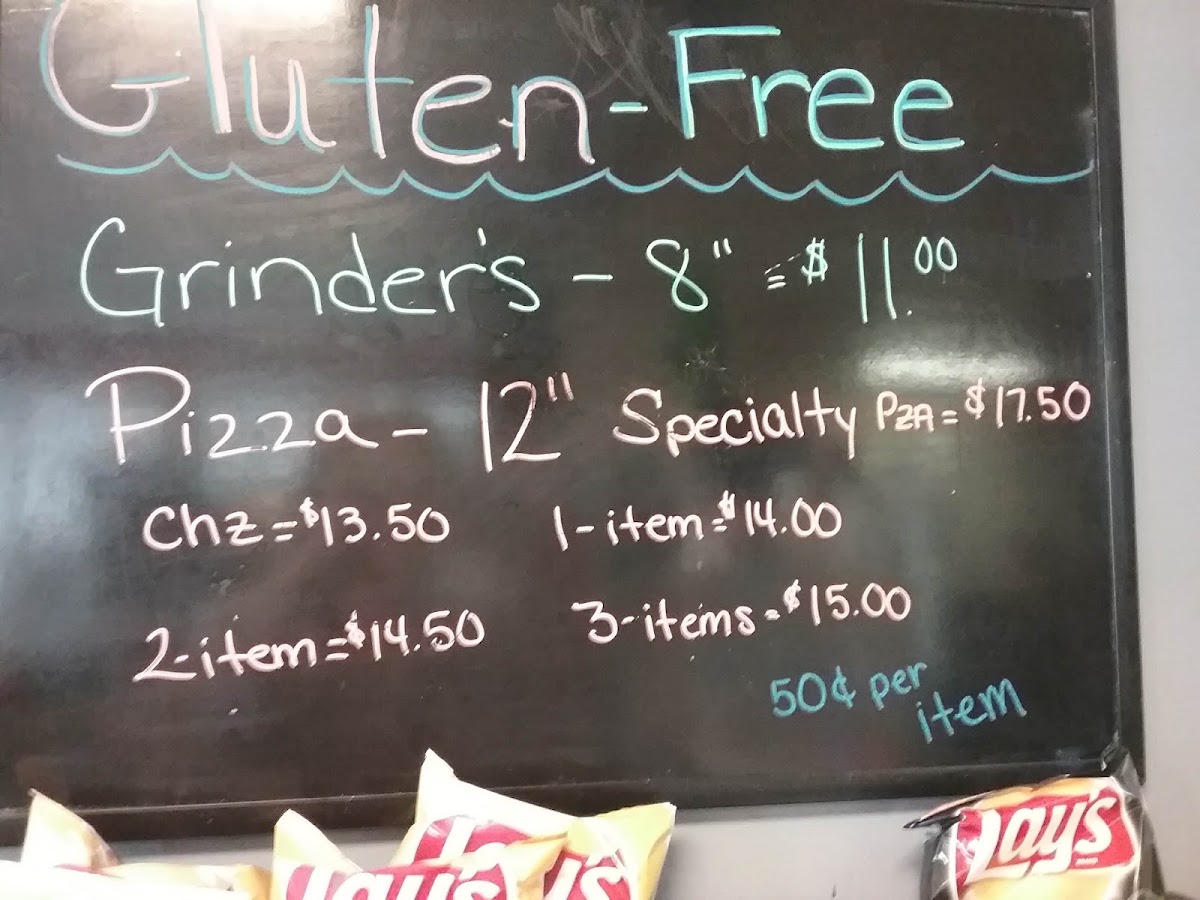 Gluten-Free
Grinder's - 8" = $11.00
Pizza - 12" Specialty PZA = $17.50
Chz = $13.50 1-item = $14.00
2-item = $14.50 3-items = $15.00
50¢ per
item
Lay's
Lay's
Lay's